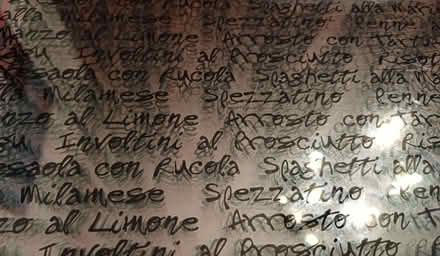 Spaghetti alla Mari
alla Milamese Spezzatino Penne
Manzo al Limone Arrosto con Tartu
su Involtini al Prosciutto Risot
essaola con Rucola Spaghetti alla M
lla Milamese Spezzatino Penne
nzo al Limone Arrosto con Tar
su Involtini al Prosciutto Ris
essaola con Rucola Spaghetti alla
Milamese Spezzatino
zo al Limone Arrosto con T
Involtini al Prosciutto